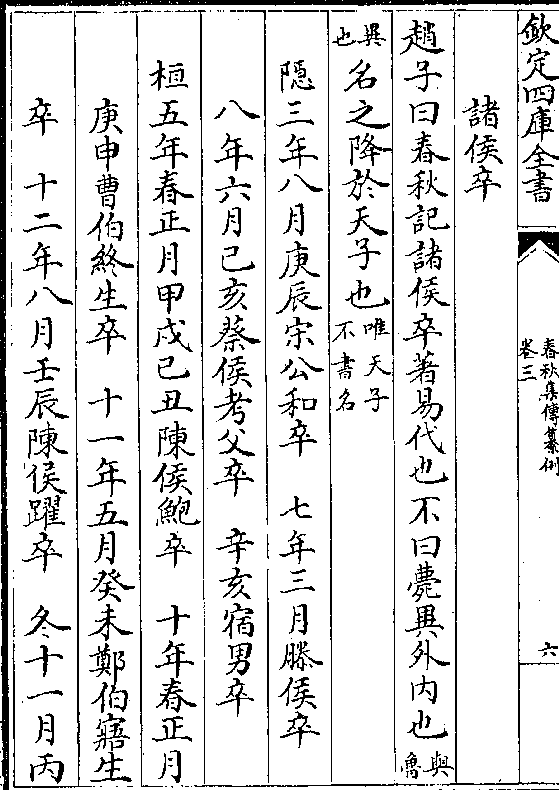 欽定四庫全書
春秋集傳纂例
卷三
六
諸侯卒
趙子曰春秋記諸侯卒著易代也不曰薨異外内也與魯
異也名之降於天子也唯天子不書名
隠三年八月庚辰宋公和卒 七年三月滕侯卒
八年六月己亥蔡侯考父卒 辛亥宿男卒
桓五年春正月甲戍己丑陳侯鮑卒 十年春正月
庚申曹伯終生卒 十一年五月癸未鄭伯寤生
卒 十二年八月壬辰陳侯躍卒 冬十一月丙